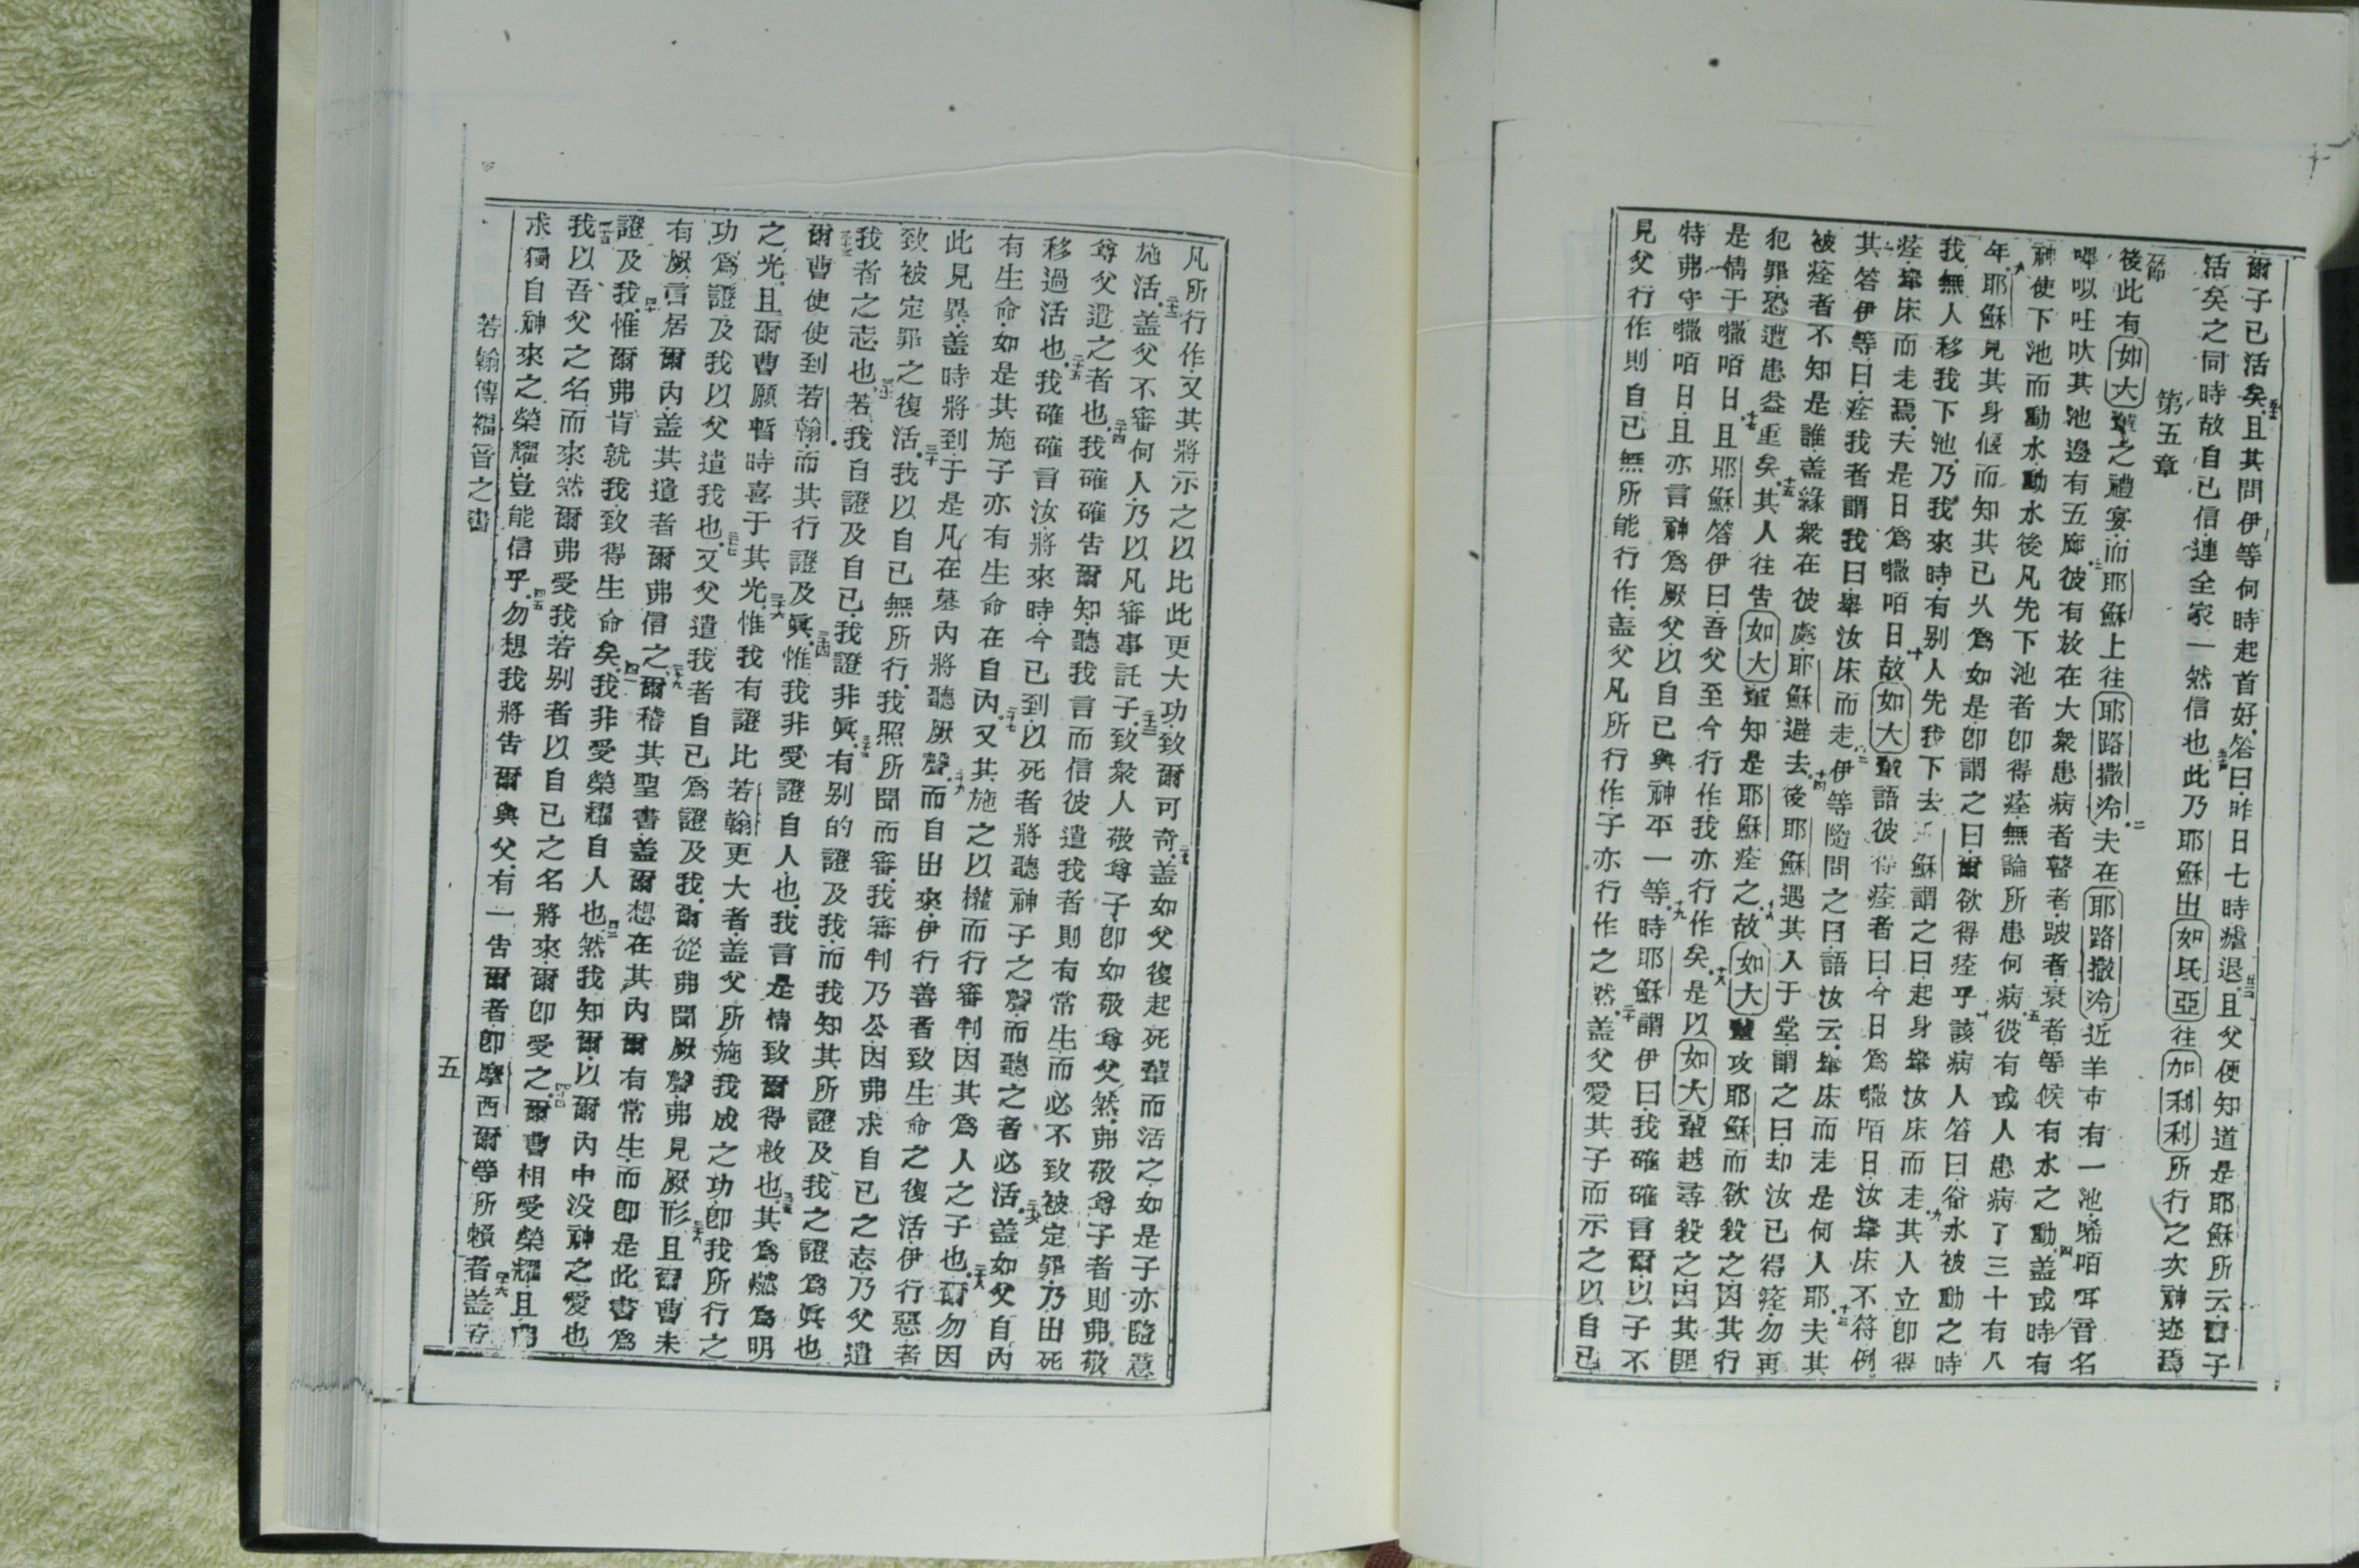 爾子已活矣且其問伊等何時起首好答曰昨日七時瘧退且父便知道是耶穌所云爾子
活矣之同時故自已信連全家一然信也此乃耶穌出如氐亞往加利利所行之次神迹焉
第五章
節後此有如大輩之禮宴而耶穌上往耶路撒冷二夫在耶路撒冷近羊市有一池唏咟咡音名
嗶㕥吐吠其池邊有五廊三彼有放在大衆患病者瞽者跛者衰者等候有水之動四蓋或時有
神使下池而動水動水後凡先下池者卽得痊無論所患何病五彼有或人患病了三十有八
年六耶穌見其身偃而知其已久爲如是卽謂之曰爾欲得痊乎七該病人答曰翁水被動之時
我無人移我下池乃我來時有别人先我下去耶穌謂之曰起身舉汝床而走九其人立卽得
痊舉床而走焉夫是日爲𡂡咟日十故如大輩語彼得痊者曰今日爲𡂡咟日汝舉床不符例
其答伊等曰痊我者謂我曰舉汝床而走十二伊等隨問之曰語汝云舉床而走是何人耶十三夫其
被痊者不知是誰蓋緣衆在彼處耶穌避去十四後耶穌遇其人于堂謂之曰却汝已得痊勿再
犯罪恐遭患益重矣十五其人往告如大輩知是耶穌痊之十六故如大輩攻耶穌而欲殺之因其行
是情于𡂡咟日十七且耶穌答伊曰吾父至今行作我亦行作矣十八是以如大輩越尋殺之因其匪
特弗守𡂡咟日且亦言神爲厥父以自已與神平一等十九時耶穌謂伊曰我確確言爾以子不
見父行作則自已無所能行作蓋父凡所行作子亦行作之然二十蓋父愛其子而示之以自已
凡所行作又其將示之以比此更大功致爾可奇二一蓋如父復起死輩而活之如是子亦隨意
施活二二蓋父不審何人乃以凡審事託子二三致衆人敬尊子卽如敬尊父然弗敬尊子者則弗敬
尊父遣之者也二四我確確告爾知聽我言而信彼遣我者則有常生而必不致被定罪乃出死
移過活也二五我確確言汝將來時今已到以死者將聽神子之聲而聽之者必活二六蓋如父自內
有生命如是其施子亦有生命在自內二七又其施之以權而行審判因其爲人之子也二八爾勿因
此見異蓋時將到于是凡在墓內將聽厥聲二九而自出來伊行善者致生命之復活伊行惡者
致被定罪之復活三十我以自已無所行我照所聞而審我審判乃公因弗求自已之志乃父遣
我者之志也三一若我自證及自已我證非眞三二有别的證及我而我知其所證及我之證爲眞也
三三爾曹使使到若翰而其行證及眞三四惟我非受證自人也我言是情致爾得救也三五其爲燃爲明
之光且爾曹願暫時喜于其光三六惟我有證比若翰更大者蓋父所施我成之功卽我所行之
功爲證及我以父遣我也三七又父遣我者自已爲證及我爾從弗聞厥聲弗見厥形三八且爾曹未
有厥言居爾內蓋其遣者爾弗信之三九爾稽其聖書蓋爾想在其內爾有常生而卽是此書爲
證及我四十惟爾弗肯就我致得生命矣四一我非受榮耀自人也四二然我知爾以爾內中没神之愛也
四三我以吾父之名而來然爾弗受我若别者以自已之名將來爾卽受之四四爾曹相受榮耀且弗
求獨自神來之榮耀豈能信乎四五勿想我將告爾與父有一告爾者卽摩西爾等所賴者四六蓋若
若翰傳福音之書
五